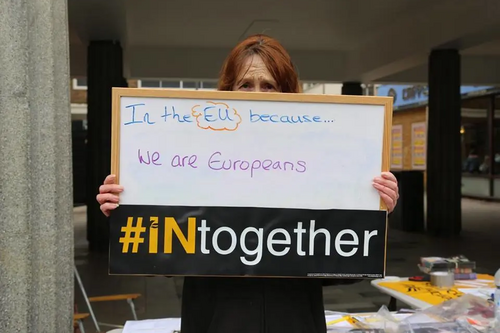 In the EU because...
We are Europeans
#iNtogether